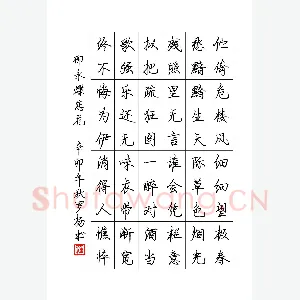 伫倚危楼风细细望极春
愁黯黯生天际草色烟光
残照里无言谁会凭栏意
拟把疏狂图一醉对酒当
歌强乐还无味衣带渐宽
终不悔为伊消得人憔悴
柳永蝶恋花 辛卯年秋
Shufawang.CN